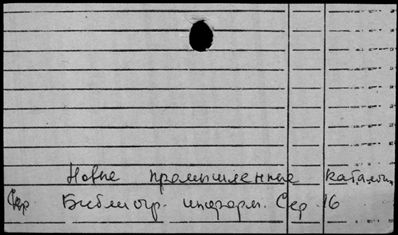 Новые промышленные каталоги
Сер Библиогр. информ. Сер 16